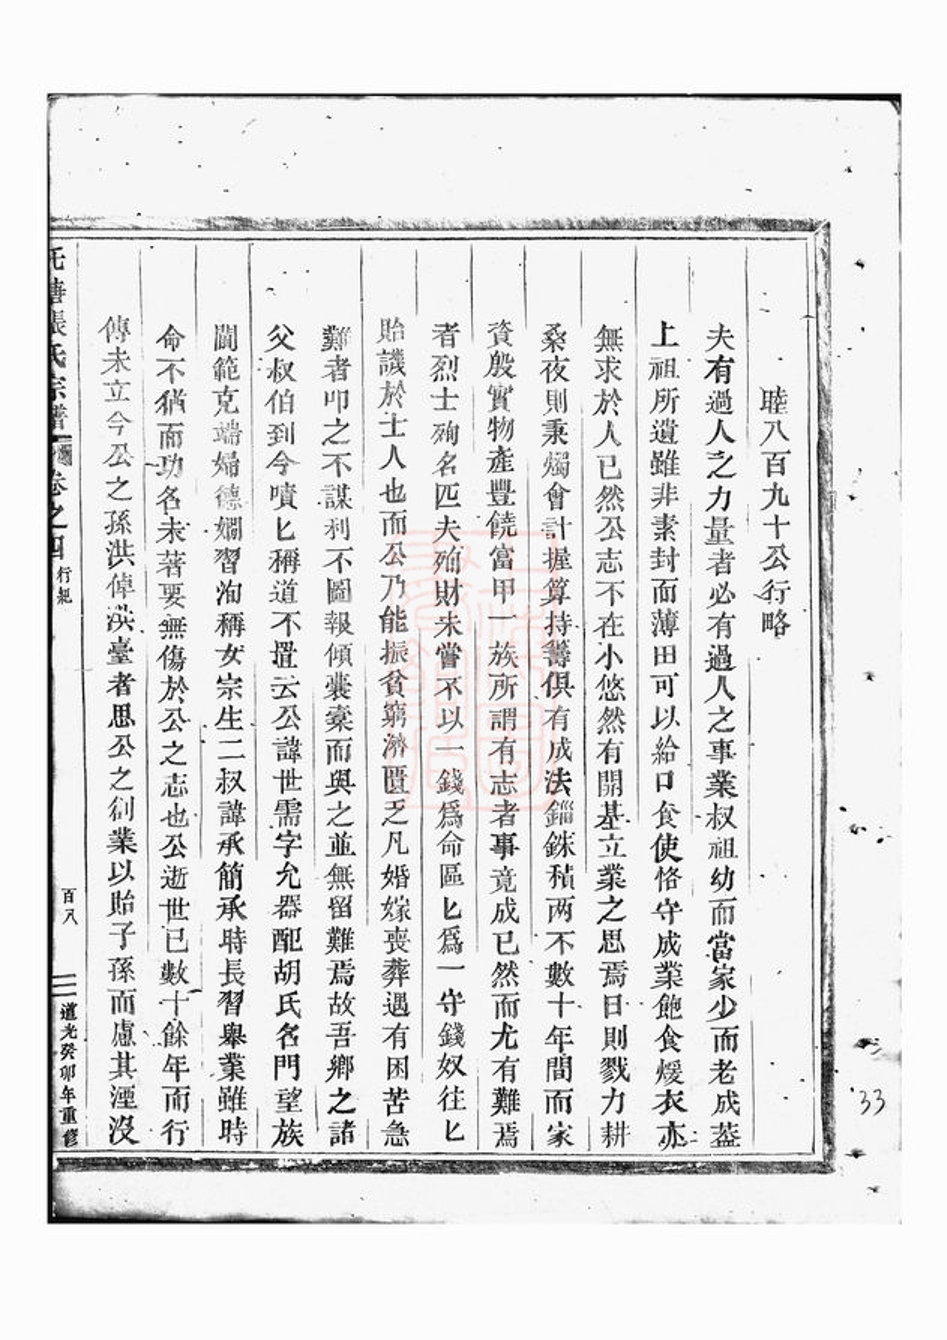 睦八百九十公行略
夫有過人之力量者必有過人之事業叔祖幼而當家少而老成葢
上祖所遺雖非素封而薄田可以給口食使恪守成業飽食煖衣亦
無求於人已然公志不在小悠然有開基立業之思焉日則戮力耕
桑夜則秉燭會計握算持籌俱有成法錙銖積两不數十年間而家
資殷實物產豐饒富甲一族所謂有志者事竟成已然而尤有難焉
者烈士殉名匹夫殉財未嘗不以一錢爲命區匕爲一守錢奴往匕
貽譏於士人也而公乃能振貧窮濟匱乏凡婚嫁喪葬遇有困苦急
難者叩之不謀利不圖報傾囊槖而與之並無留難焉故吾鄉之諸
父叔伯到今嘖匕稱道不置云公諱世需字允器配胡氏名門望族
閫範克端婦德嫺習洵稱女宗生二叔諱承簡承時長習舉業雖時
命不猶而功名未著要無傷於公之志也公逝世已數十餘年而行
傳未立今公之孫洪倬洪臺者思公之創業以貽子孫而慮其湮沒
張氏宗譜 卷之四 行紀 百八 道光癸卯年重修
33